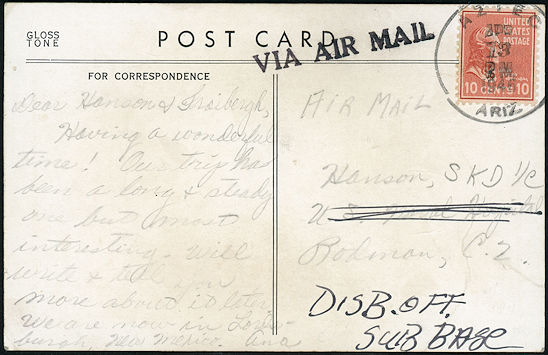 GLOSS
TONE
POST CARD
VIA AIR MAIL
AZTEC
ARIZ
UNITED
STATES
POSTAGE
10 CENTS 10
FOR CORRESPONDENCE
Dear Hanson &
Having a wonderful
time! Our trip has
been a long & steady
one but most
interesting. Will
write & tell you
more about it later
We are now in Lords-
burgh, New Mexico. Ana
AIR MAIL
Hanson, SKD 1/c
U.S. Naval Hospital
Rodman, C.Z.
DISB. OFF.
SUB BASE